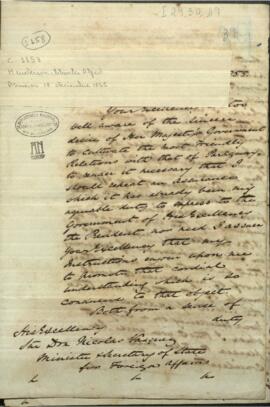 I-29,30,19
C. 1257
Henderson, Charles Alfred
1855
Your Excellency is too
well aware of the sincere
desire of Her Majesty's Government
to cultivate the most friendly
Relations with that of Paraguay
to render it necessary that I
should repeat an assurance
which it has already been my
agreeable duty to express to the
Government of His Excellency
the President, nor need I assure
Your Excellency that my
Instructions enjoin upon me
to promote that cordial
understanding which is so
to that object.
Both from a sense of
duty
His Excellency
Don Nicolas Vasquez
Minister Secretary of State
for Foreign Affairs